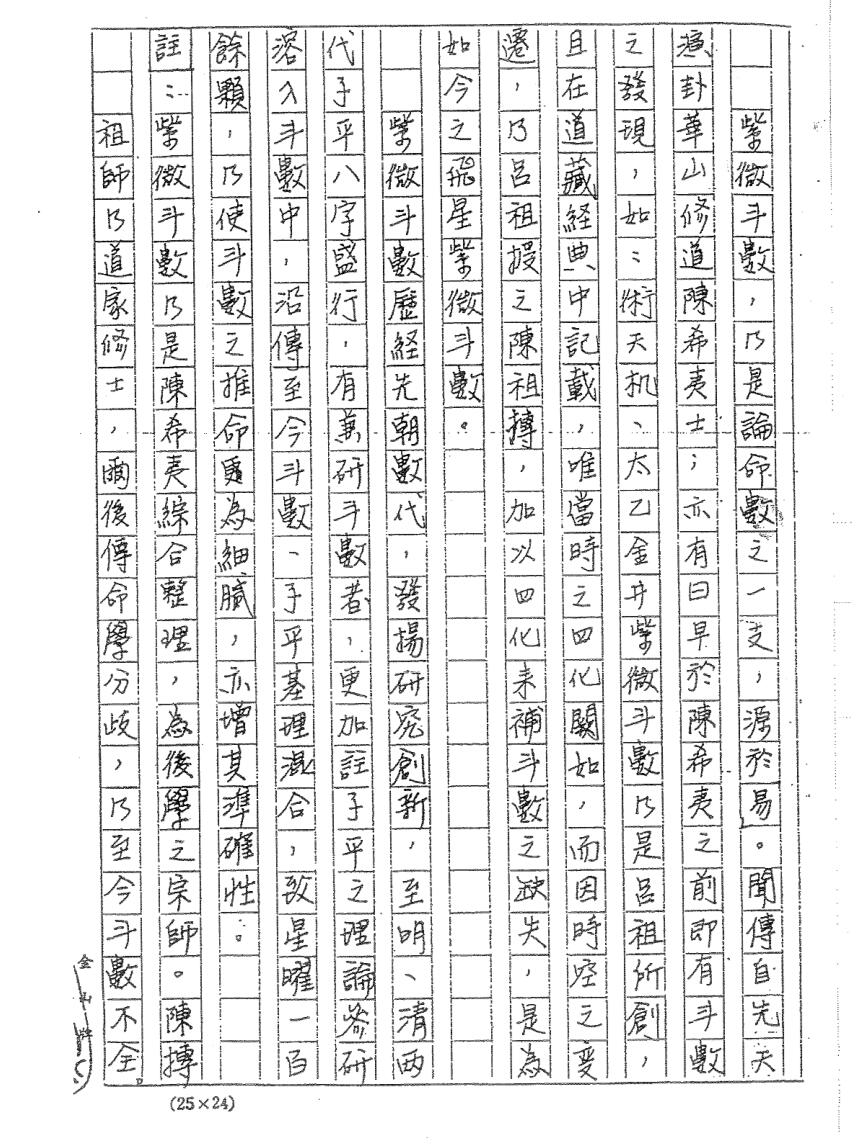 紫微斗數，乃是論命數之一支，源於易。聞傳自先天
演卦華山修道陳希夷士；亦有曰早於陳希夷之前即有斗數
之發現，如：術天机、太乙金井紫微斗數乃是呂祖所創，
且在道藏経典中記載，唯當時之四化闕如，而因時空之变
遷，乃呂祖授之陳祖摶，加以四化来補斗數之缺失，是為
如今之飛星紫微斗數。
紫微斗數歷経先朝數代，發揚研究創新，至明、清两
代子平八字盛行，有兼研斗數者，更加註子平之理論於研
溶入斗數中，沿傳至今斗數、子平基理混合，致星曜一百
餘顆，乃使斗數之推命更為細膩，亦增其準確性。
註：紫微斗數乃是陳希夷綜合整理，為後學之宗師。陳摶
祖師乃道家修士，爾後傳命學分歧，乃至今斗數不全。
金山牌
(25×24)